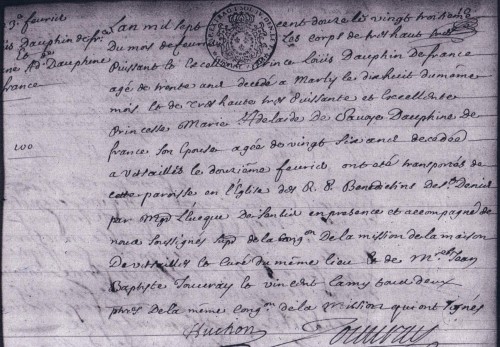 3e fevrier
Louis Dauphin de fr.
et de
Me Ad. Dauphine
france
100
Lan mil sept cent douze le vingt troisieme
du mois de fevrier Les corps de tres haut tres
Puissant et Excellent Prince Loüis Dauphin de france
agé de trente ans decedé a Marly le dixhuit du mème
mois et de Tres haute tres Puissante et Excellente
Princesse Marie Adelaide de Savoye Dauphine de
france son Epouse agée de vingt six ans decedée
a versailles le douziême fevrier, ont eté transportés de
cette paroisse en l'Eglise des R. P. Benedictins de St. Denis
par Mgr L'Eveque de Senlis en presence et accompagné de
nous soussignés de la Congon. De la mission de la maison
De versailles et Curé du mème lieu et de Mres. Jean
Baptiste et vincent Lamy tous deux
pbres De la mème Congon. de la Mission qui ont signés
Huchon